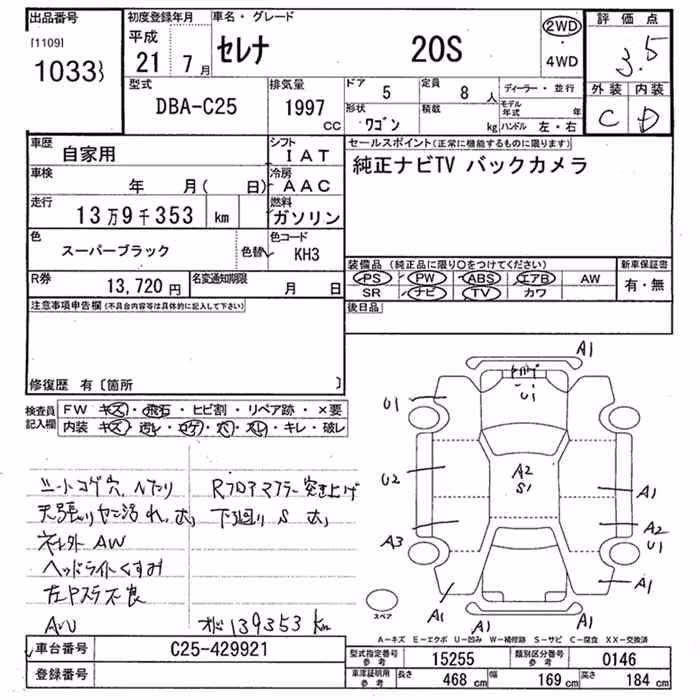 出品番号
[1109]
1033
初度登録年月
平成
21 7月
車名・グレード
セレナ 20S
2WD
・4WD
評価点
3.5
外装 内装
C D
型式
DBA-C25
排気量
1997 CC
ドア 5
定員 8 人
形状 ワゴン
積載 kg
ディーラー・並行
モデル年式 年
ハンドル 左・右
車歴 自家用
シフト IAT
車検 年 月( 日)
冷房 AAC
走行 13万9千353 km
燃料 ガソリン
色 スーパーブラック 色替
色コード KH3
R券 13,720円
名変通知期限 月 日
セールスポイント(正常に機能するものに限ります)
純正ナビTV バックカメラ
装備品 (純正品に限り〇をつけてください)
PS PW ABS エアB AW
SR ナビ TV カワ
新車保証書
有・無
注意事項申告欄(不具合内容等は具体的に記入して下さい)
後日品
修復歴 有〔箇所 〕
検査員記入欄
FW キズ・飛石・ヒビ割・リペア跡・×要
内装 キズ・汚レ・コゲ・穴・スレ・キレ・破レ
シートコゲ穴、ヘタリ
天張りヤニ汚れ、大
社外AW
ヘッドライトくすみ
左Pステ不良
Rフロアマフラー突き上げ
下廻りS大
139353 km
A1
U1
U1
U2
A2
S1
A1
A3
A2
U1
A1
A1
A1
A1
スペア
A-キズ E-エクボ U-凹み W-補修跡 S-サビ C-腐食 XX-交換済
車台番号 C25-429921
登録番号
型式指定番号 参考 15255
類別区分番号 参考 0146
車庫証明用 参考 長さ 468 cm 幅 169 cm 高さ 184 cm